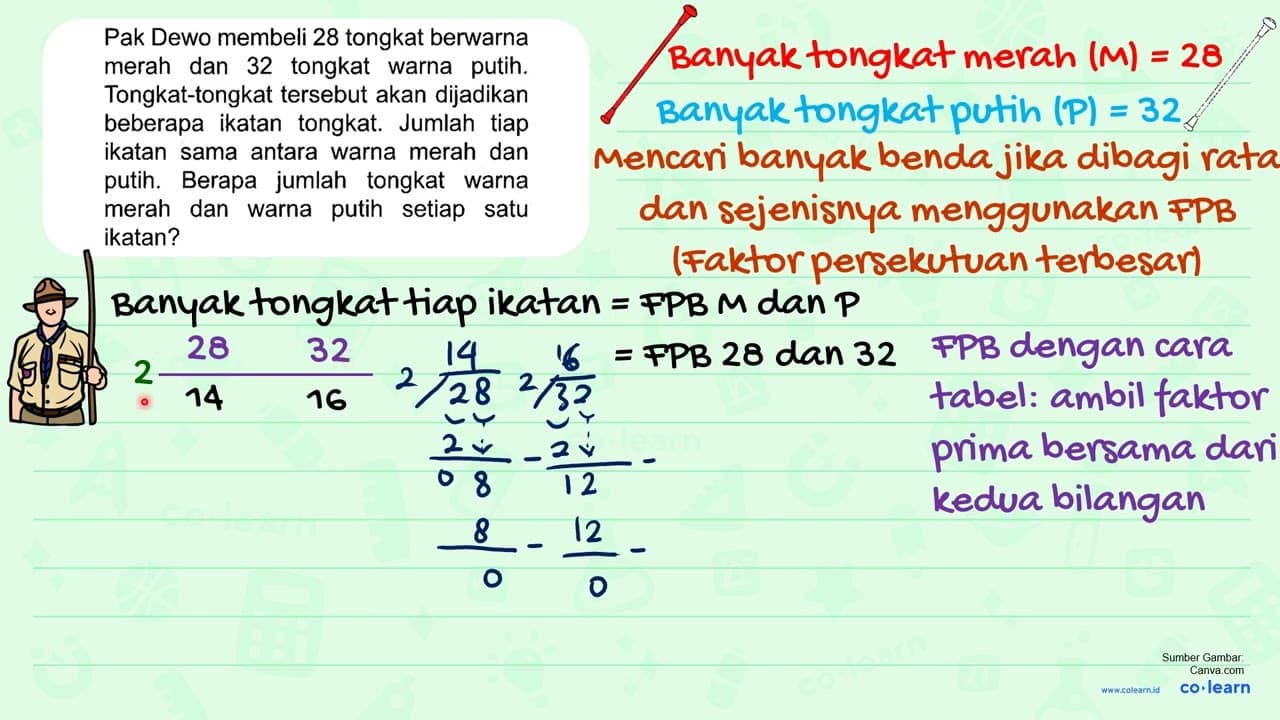 Pak Dewo membeli 28 tongkat berwarna
merah dan 32 tongkat warna putih.
Tongkat-tongkat tersebut akan dijadikan
beberapa ikatan tongkat. Jumlah tiap
ikatan sama antara warna merah dan
putih. Berapa jumlah tongkat warna
merah dan warna putih setiap satu
ikatan?
Banyak tongkat merah (M) = 28
Banyak tongkat putih (P) = 32
Mencari banyak benda jika dibagi rata
dan sejenisnya menggunakan FPB
(Faktor persekutuan terbesar)
Banyak tongkat tiap ikatan = FPB M dan P
= FPB 28 dan 32
28 32
2
14 16
14
2 28
2
0 8
8 -
0
16
2 32
2 -
12
12 -
0
FPB dengan cara
tabel: ambil faktor
prima bersama dari
kedua bilangan
co·learn
co·learn
co·learn
Sumber Gambar:
Canva.com
www.colearn.id co·learn